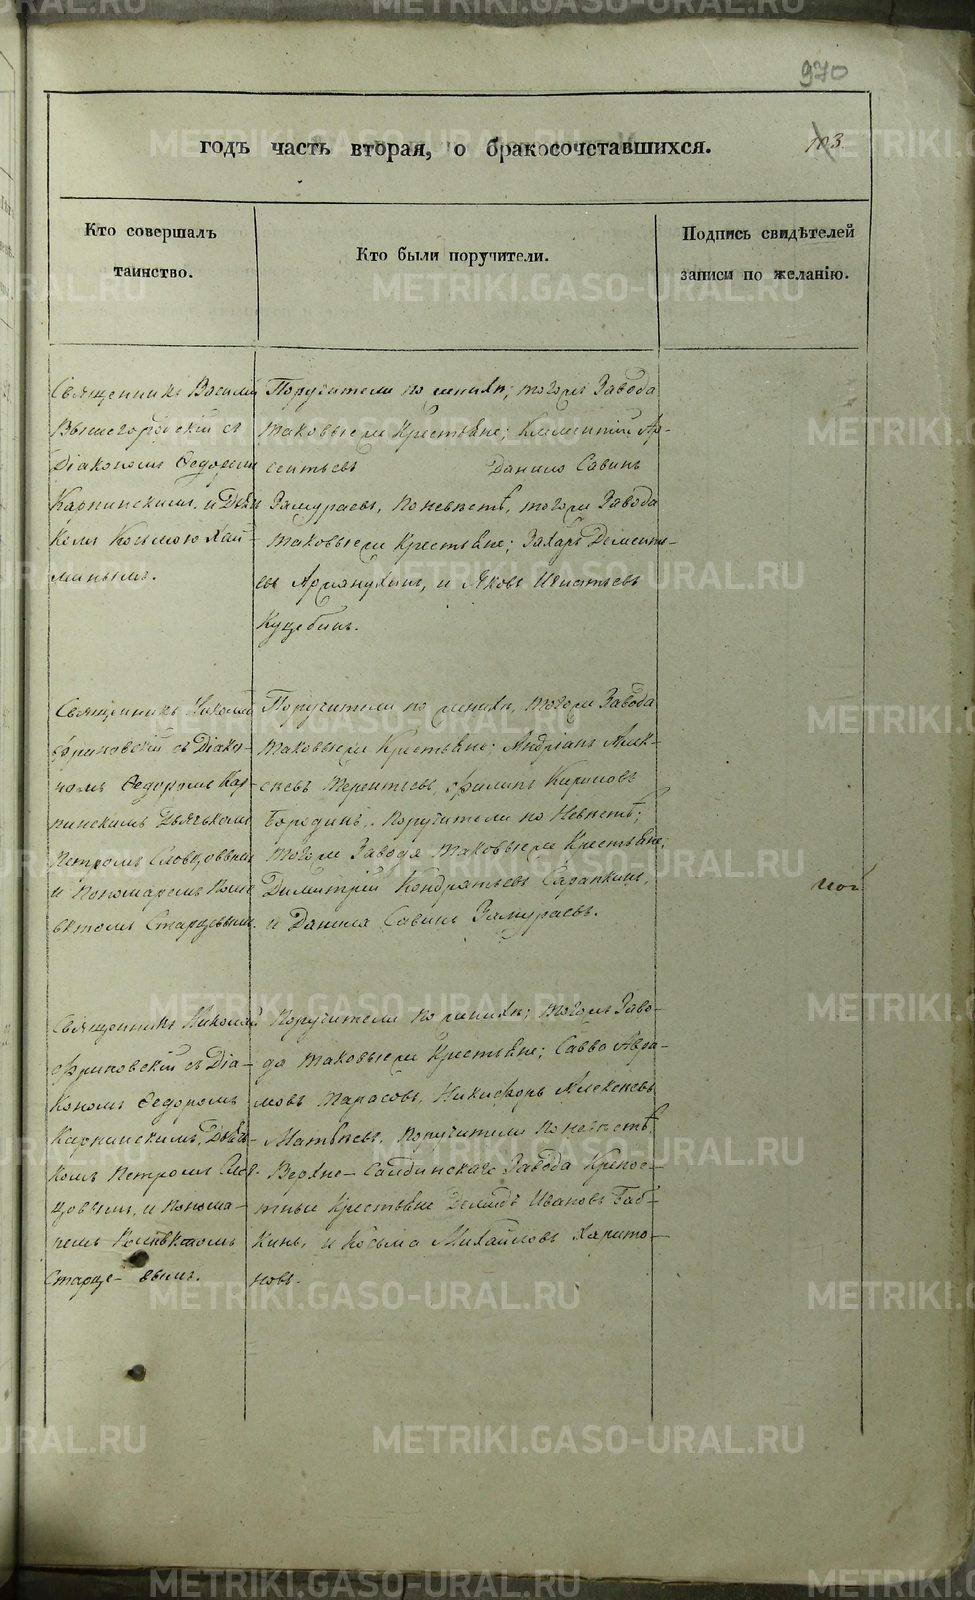 970
годъ часть вторая, о бракосочетавшихся.
103
Кто совершалъ
таинство.
Кто были поручители.
Подпись свидѣтелей
записи по желанію.
Священникъ Василій
Вышегородскій съ
Діакономъ Ѳедоромъ
Карпинскимъ, и Дьяч
комъ Космою Хай-
минымъ.
Поручители по женихѣ; тогожъ Завода
таковыежъ Крестьяне; Климентій Ар-
сентьевъ Данило Савинъ
Замураевъ, по невѣстѣ, тогожъ Завода
таковыежъ Крестьяне; Захаръ Дементь-
евъ и Яковъ Игнатьевъ
Священникъ Николай
съ Діако-
номъ Ѳедоромъ Кар-
пинскимъ Дьячькомъ
Петромъ Словцовымъ
и Пономаремъ
Старцевымъ.
Поручители по женихѣ, тогожъ Завода
таковыежъ Крестьяне: Андріанъ Алек-
сѣевъ Терентьевъ, Филипъ Кириловъ
Бородинъ, Поручители по Невѣстѣ;
тогожъ Завода таковыежъ Крестьяне;
Димитрій Кондратьевъ Сарапкинъ,
и Данила Савинъ Замураевъ.
Священникъ Николай
съ Діа-
кономъ Ѳедоромъ
Карпинскимъ, Дьяч-
комъ Петромъ Слов-
цовымъ, и понома-
ремъ
Старце- вымъ.
Поручители по женихѣ; тогожъ Заво-
да таковыежъ Крестьяне; Савва Авра-
мовъ Тарасовъ, Никифоръ Алексѣевъ
Матвѣевъ, поручители по невѣстѣ,
Верхне-Салдинскаго Завода Крепос-
тные Крестьяне Демидъ Ивановъ Баб-
кинъ, и Косьма Михайловъ Харито-
новъ.
METRIKI.GASO-URAL.RU